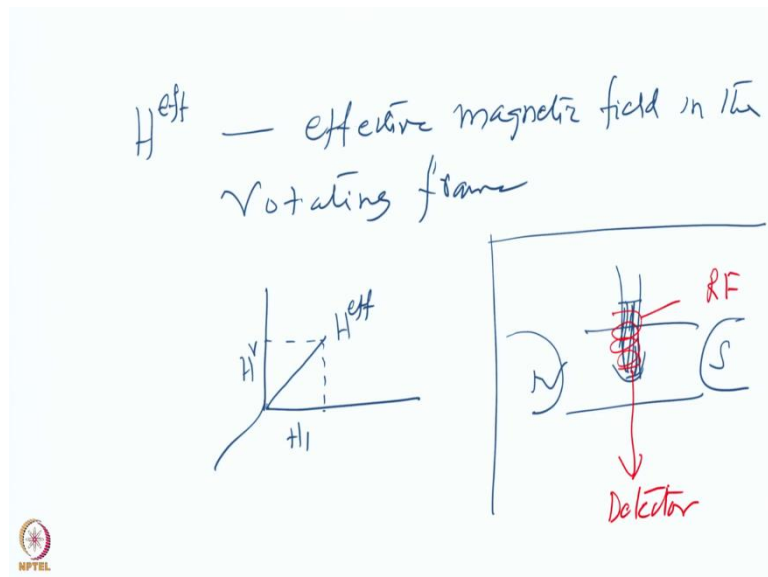 H^eff — effective magnetic field in the
rotating frame
H^eff
H^r
H1
RF
N
S
Detector
NPTEL